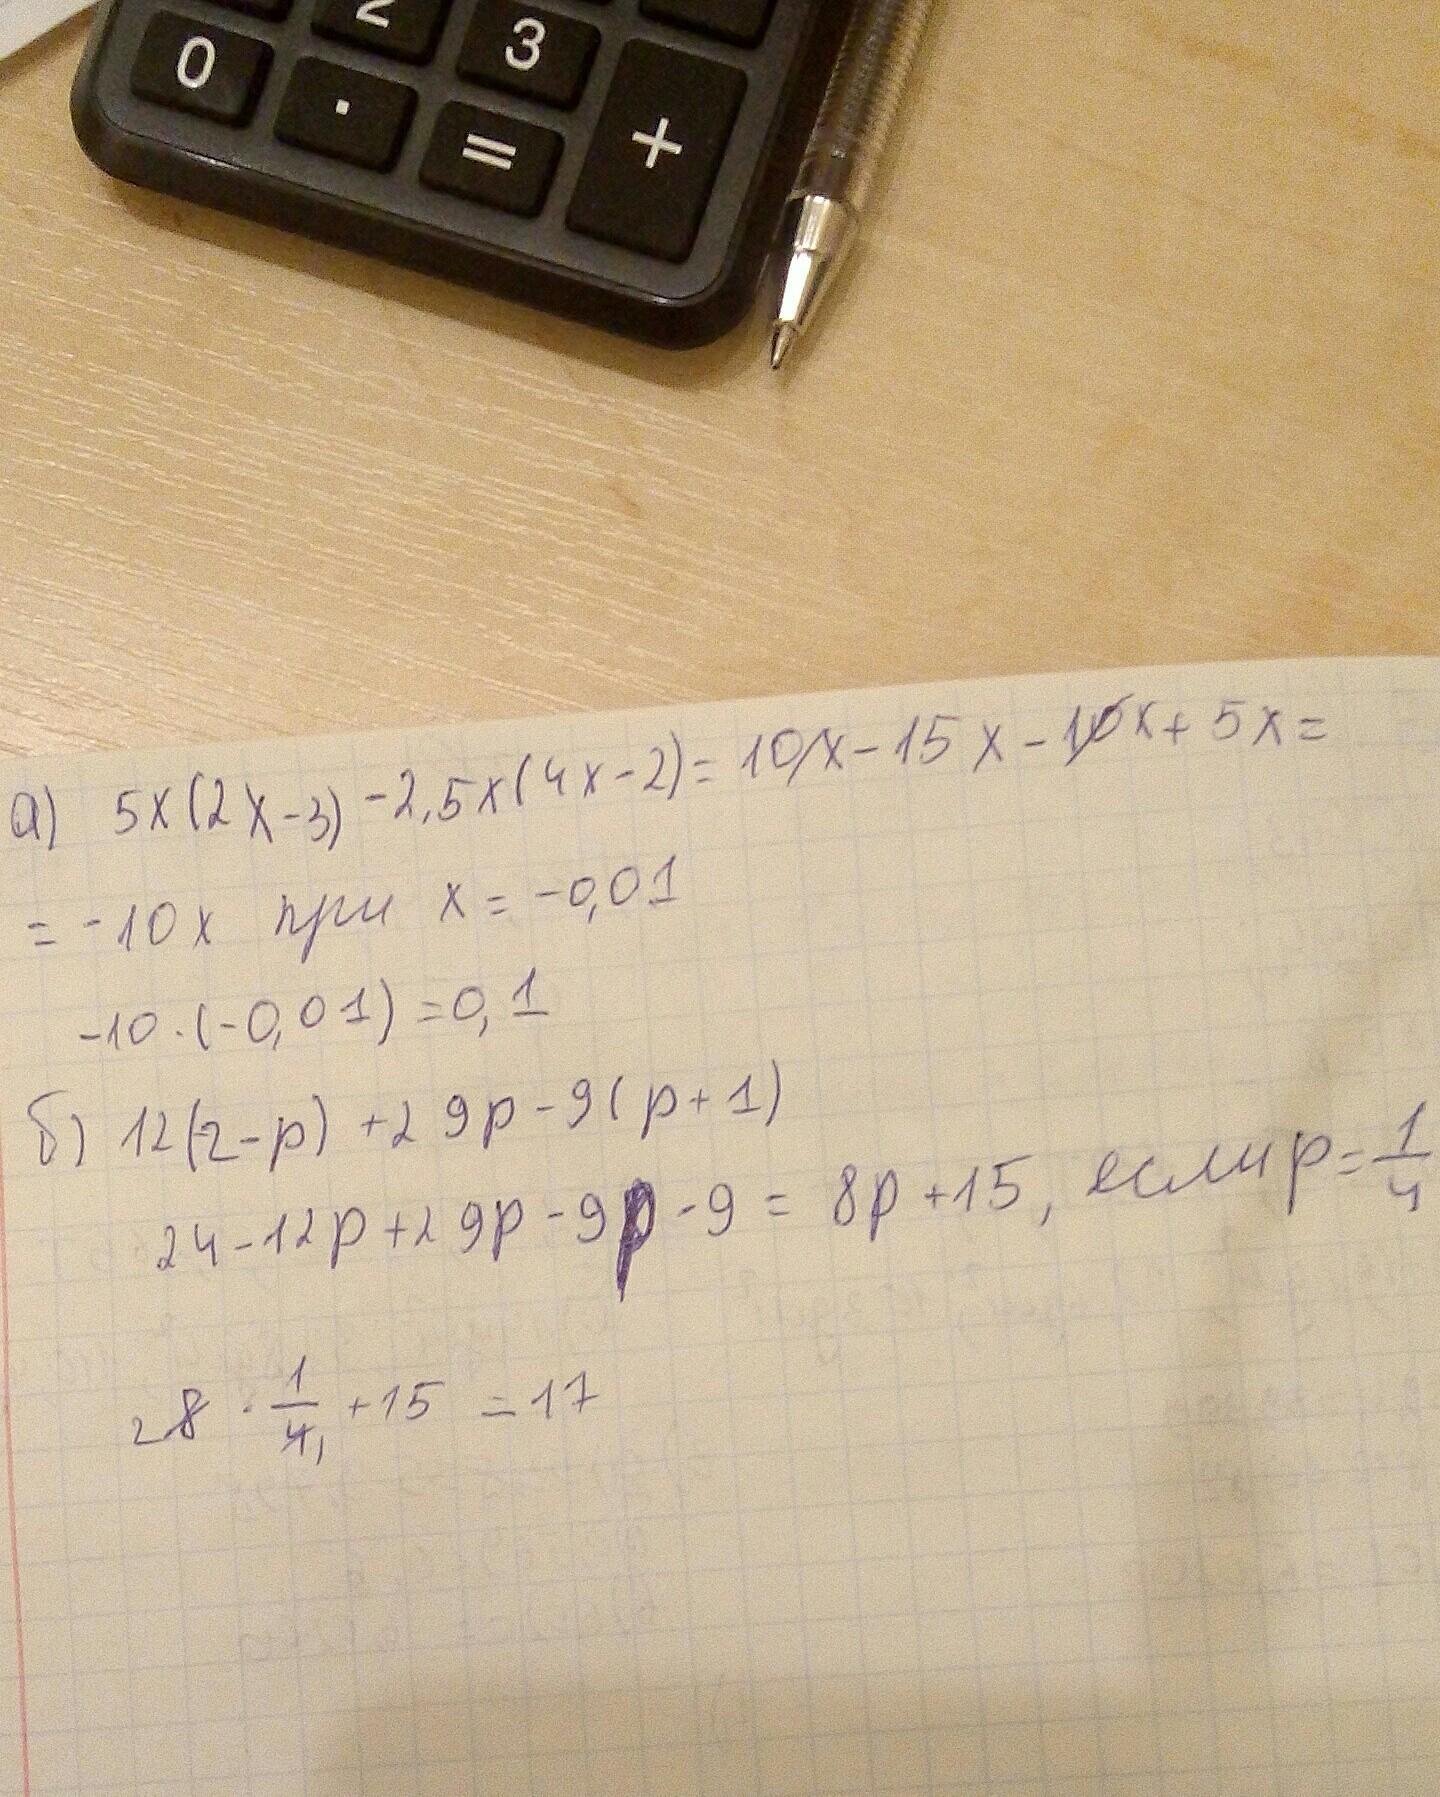 2
0 3
. = +
а) 5x(2x-3) -2,5x(4x-2)= 10x-15x-10x+5x=
= -10x при x= -0,01
-10·(-0,01)=0,1
б) 12(2-p) +29p-9(p+1)
24-12p+29p-9p-9= 8p+15, если p=1/4
28·1/4,+15 =17